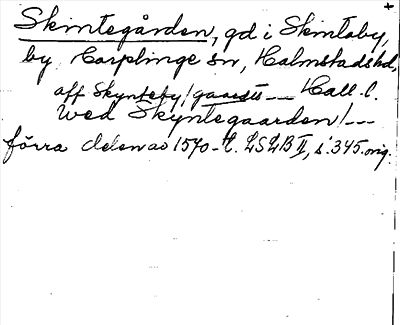 Skintegården, gd i Skintaby,
by Carplinge sn, Halmstads hd,
aff Skynteby / gaardt --- Hall. l.
wed Skyntegaarden / ---
förra delen av 1570-t. LSLB II, s. 345. orig.